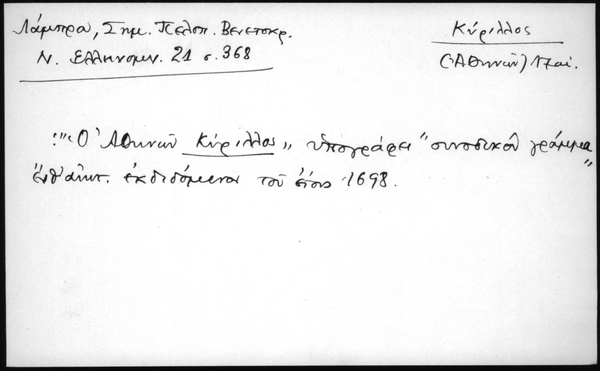 Λάμπρα, Σημ. Πελοπ. Βενετοκρ.
Ν. Ελληνομν. 21 σ. 368
Κύριλλος
(Ἀθηνῶν) 17 αἰ.
:"Ὁ Ἀθηνῶν Κύριλλος" ὑπογράφει "συνοδικὸν γράμμα"
ἐκδιδόμενον τοῦ ἔτους 1698.